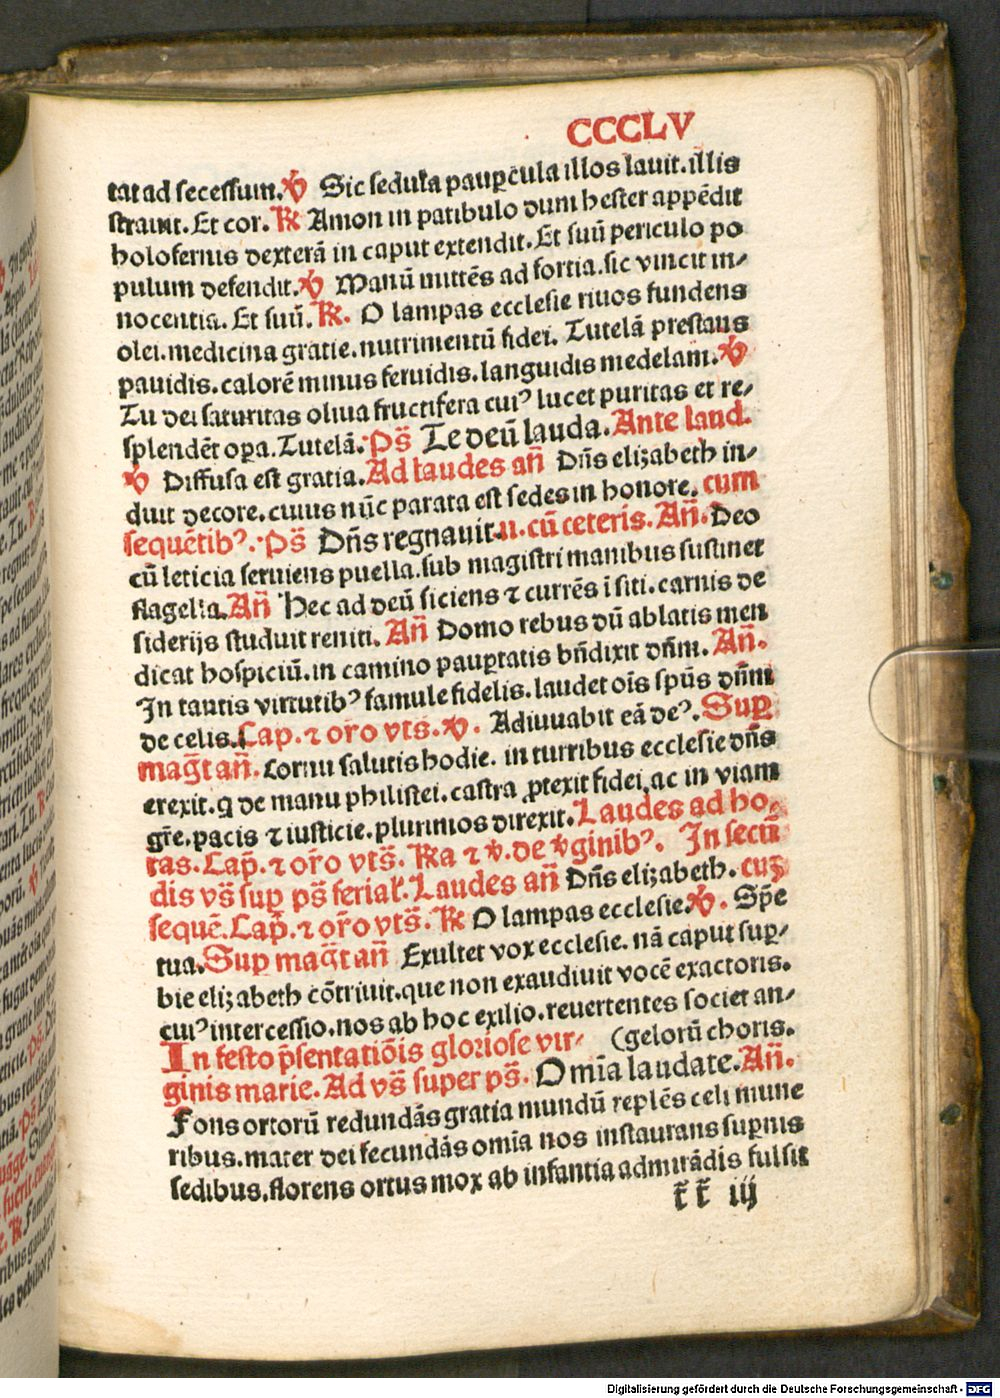 CCCLV
tat ad secessum. ℣ Sic sedula paup̲cula illos lauit. illis
strauit. Et cor. ℟ Amon in patibulo dum hester appēdit
holofernis dexterā in caput extendit. Et suū periculo po
pulum defendit. ℣ Manū mittēs ad fortia. sic vincit in-
nocentia. Et suū. ℟. O lampas ecclesie riuos fundens
olei. medicina gratie. nutrimentū fidei. Tutelā prestans
pauidis. calorē minus feruidis. languidis medelam. ℣
Tu dei saturitas oliua fructifera cuiꝰ lucet puritas et re-
splendēt oꝑa. Tutelā. Ps̄ Te deū lauda. Ante laud.
℣ Diffusa est gratia. Ad laudes an̄ Dn̄s elizabeth in-
duit decore. cuius nūc parata est sedes in honore. cum
sequētibꝰ. Ps̄ Dn̄s regnauit. u. cū ceteris. An̄. Deo
cū leticia seruiens puella. sub magistri manibus sustinet
flagella. An̄ Hec ad deū siciens ⁊ currēs ī siti. carnis de
siderijs studuit reniti. An̄ Domo rebus dū ablatis men
dicat hospiciū. in camino pauꝑtatis bn̄dixit dn̄m. An̄.
In tantis virtutibꝰ famule fidelis. laudet oīs sp̄us dn̄m
de celis. Cap. ⁊ or̄o vts̄. ℣. Adiuuabit eā deꝰ. Suꝑ
mag̅t an̄. Cornu salutis hodie. in turribus ecclesie dn̄s
erexit. q de manu philistei. castra ꝓtexit fidei, ac in viam
gr̄e. pacis ⁊ iusticie. plurimos direxit. Laudes ad ho-
ras. Cap̄. ⁊ or̄o vts̄. ℟a ⁊ ℣. de ꝟginibꝰ. In secū
dis vs̄ suꝑ ps̄ ferial. Laudes an̄ Dn̄s elizabeth. cuꝫ
sequē. Cap̄. ⁊ or̄o vts̄. ℟ O lampas ecclesie. ℣. Sp̄e
tua. Suꝑ mag̅t an̄ Exultet vox ecclesie. nā caput suꝑ-
bie elizabeth cōtriuit. que non exaudiuit vocē exactoris.
cuiꝰ intercessio. nos ab hoc exilio. reuertentes societ an-
In festo p̄sentatiōis gloriose vir- (gelorū choris.
ginis marie. Ad vs̄ super ps̄. Om̄ia laudate. An̄.
Fons ortorū redundās gratia mundū replēs celi mune
ribus. mater dei fecundās om̄ia nos instaurans suꝑnis
sedibus. florens ortus mox ab infantia admirādis fulsit
r̄ r̄ iij
Digitalisierung gefördert durch die Deutsche Forschungsgemeinschaft - DFG